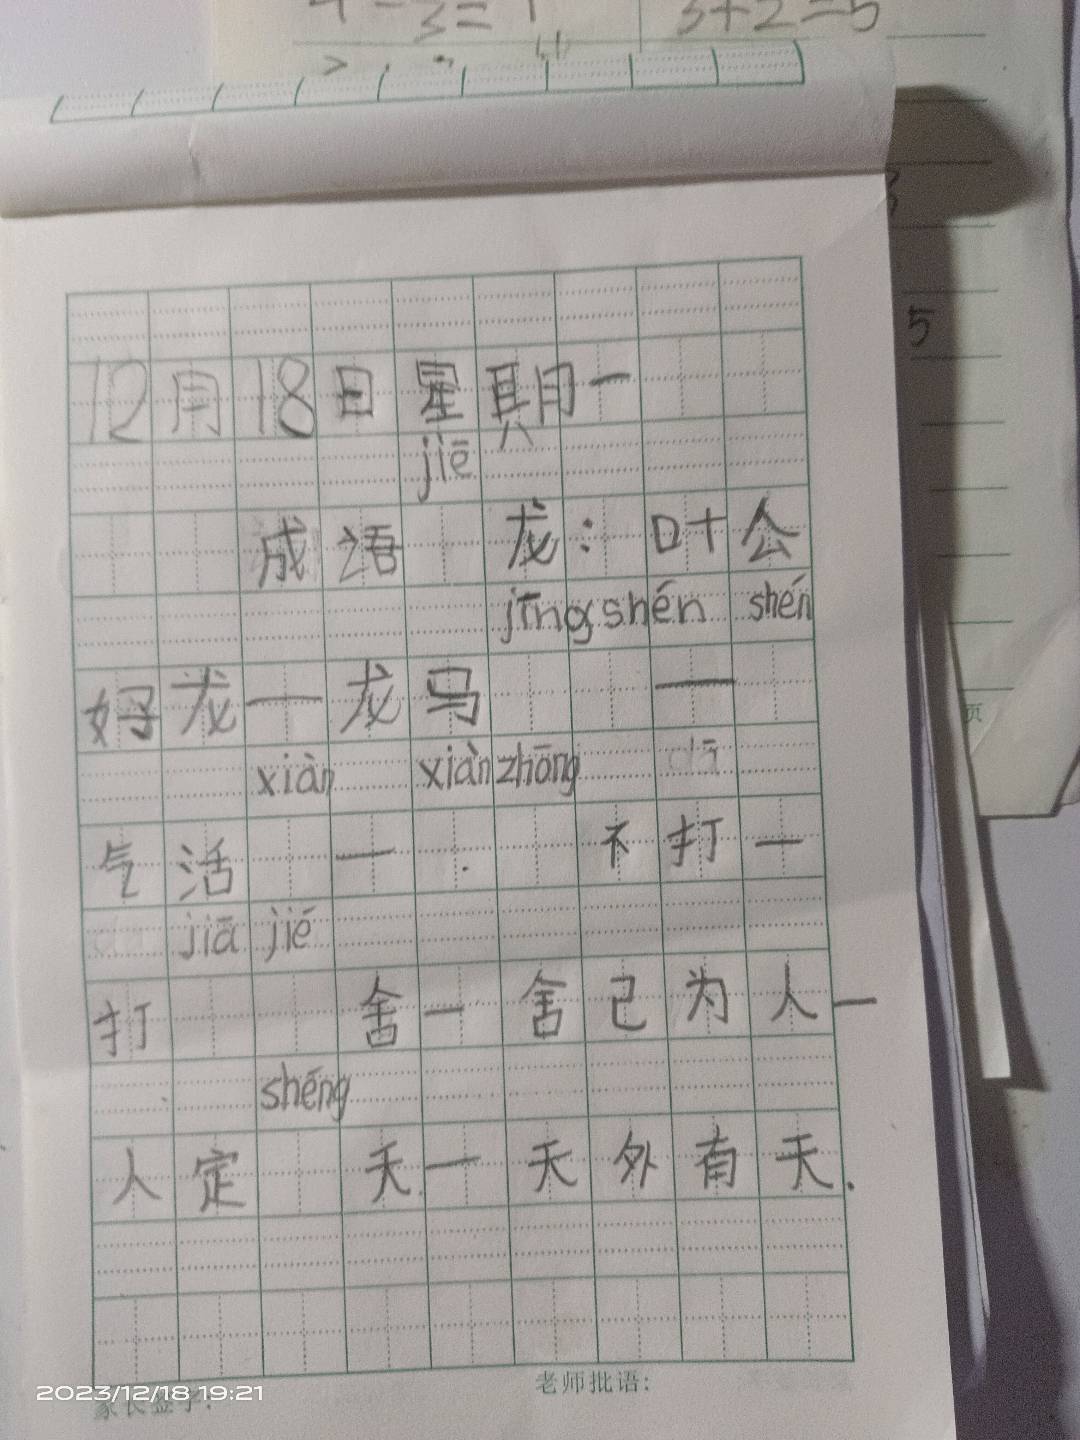 3+2=5
5
12月18日星期一
jiē
成语 龙：叶公
jīngshén shén
好龙一龙马 一
xiàn xiànzhōng dǎ
气活 一. 不打一
jiā jié
打 舍一舍己为人一
shéng
人定 天一天外有天.
老师批语:
家长签字:
页
2023/12/18 19:21